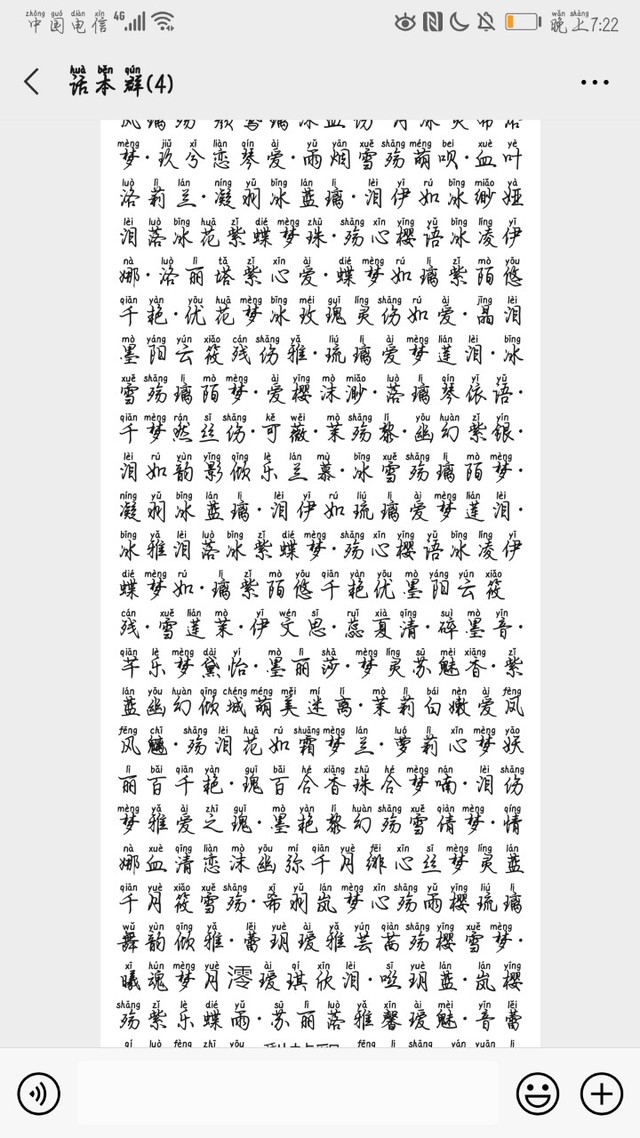 中国电信 4G 晚上7:22
话本群(4)
梦·玖兮恋琴爱·雨烟雪殇萌呗·血叶
洛莉兰·凝羽冰蓝璃·泪伊如冰缈娅
泪落冰花紫蝶梦珠·殇心樱语冰凌伊
娜·洛丽塔紫心爱·蝶梦如璃紫陌悠
千艳·优花梦冰玫瑰灵伤如爱·晶泪
墨阳云筱残伤雅·琉璃爱梦莲泪·冰
雪殇璃陌梦·爱樱沫渺·落璃琴依语·
千梦然丝伤·可薇·茉殇黎·幽幻紫银·
泪如韵影倾乐兰慕·冰雪殇璃陌梦·
凝羽冰蓝璃·泪伊如琉璃爱梦莲泪·
冰雅泪落冰紫蝶梦·殇心樱语冰凌伊
蝶梦如·璃紫陌悠千艳优墨阳云筱
残·雪莲茉·伊文思·蕊夏清·碎墨音·
芊乐梦黛怡·墨丽莎·梦灵苏魅香·紫
蓝幽幻倾城萌美迷离·茉莉白嫩爱凤
风魑·殇泪花如霜梦兰·萝莉心梦妖
丽百千艳·瑰百合香珠合梦喃·泪伤
梦雅爱之瑰·墨艳黎幻殇雪倩梦·情
娜血清恋沫幽弥千月绯心丝梦灵蓝
千月筱雪殇·希羽岚梦心殇雨樱琉璃
舞韵倾雅·蕾玥瑷雅芸茵殇樱雪梦·
曦魂梦月澪瑷琪欣泪·咝玥蓝·岚樱
殇紫乐蝶雨·苏丽落雅馨瑷魅·音蕾